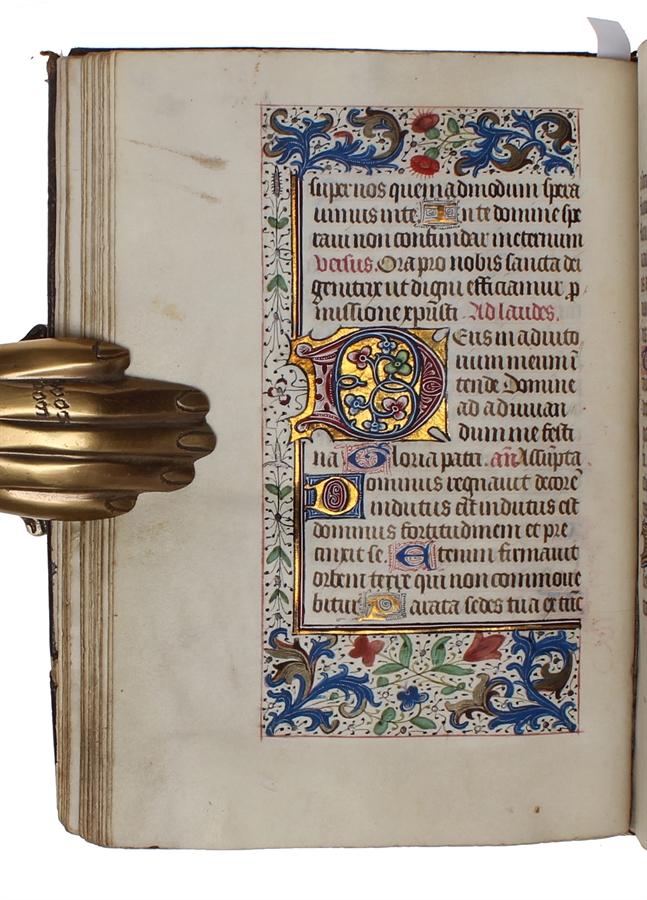 super nos quemadmodum spera
uimus in te. In te domine spe
raui non confundar in eternum
Versus. Ora pro nobis sancta dei
genitrix ut digni efficiamur p
missione xpristi Ad laudes.
Deus in adiuto
rium meum i
tende Domine
ad adiuuan
dum me festi
na Gloria patri. an Assūpta.
Dominus regnauit decorē
indutus est indutus est
dominus fortitudinem et pre
cinxit se Etenim firmauit
orbem terre qui non commoue
bitur Parata sedes tua ex tūc